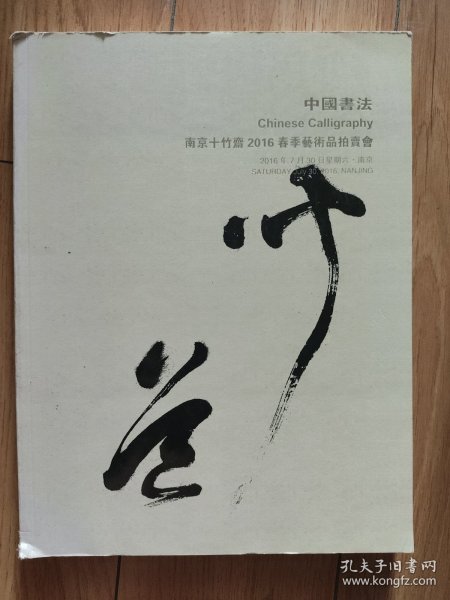 中國書法
Chinese Calligraphy
南京十竹齋 2016 春季藝術品拍賣會
2016 年 7 月 30 日星期六·南京
SATURDAY July 30, 2016, NANJING
孔夫子旧书网
www.kongfz.com